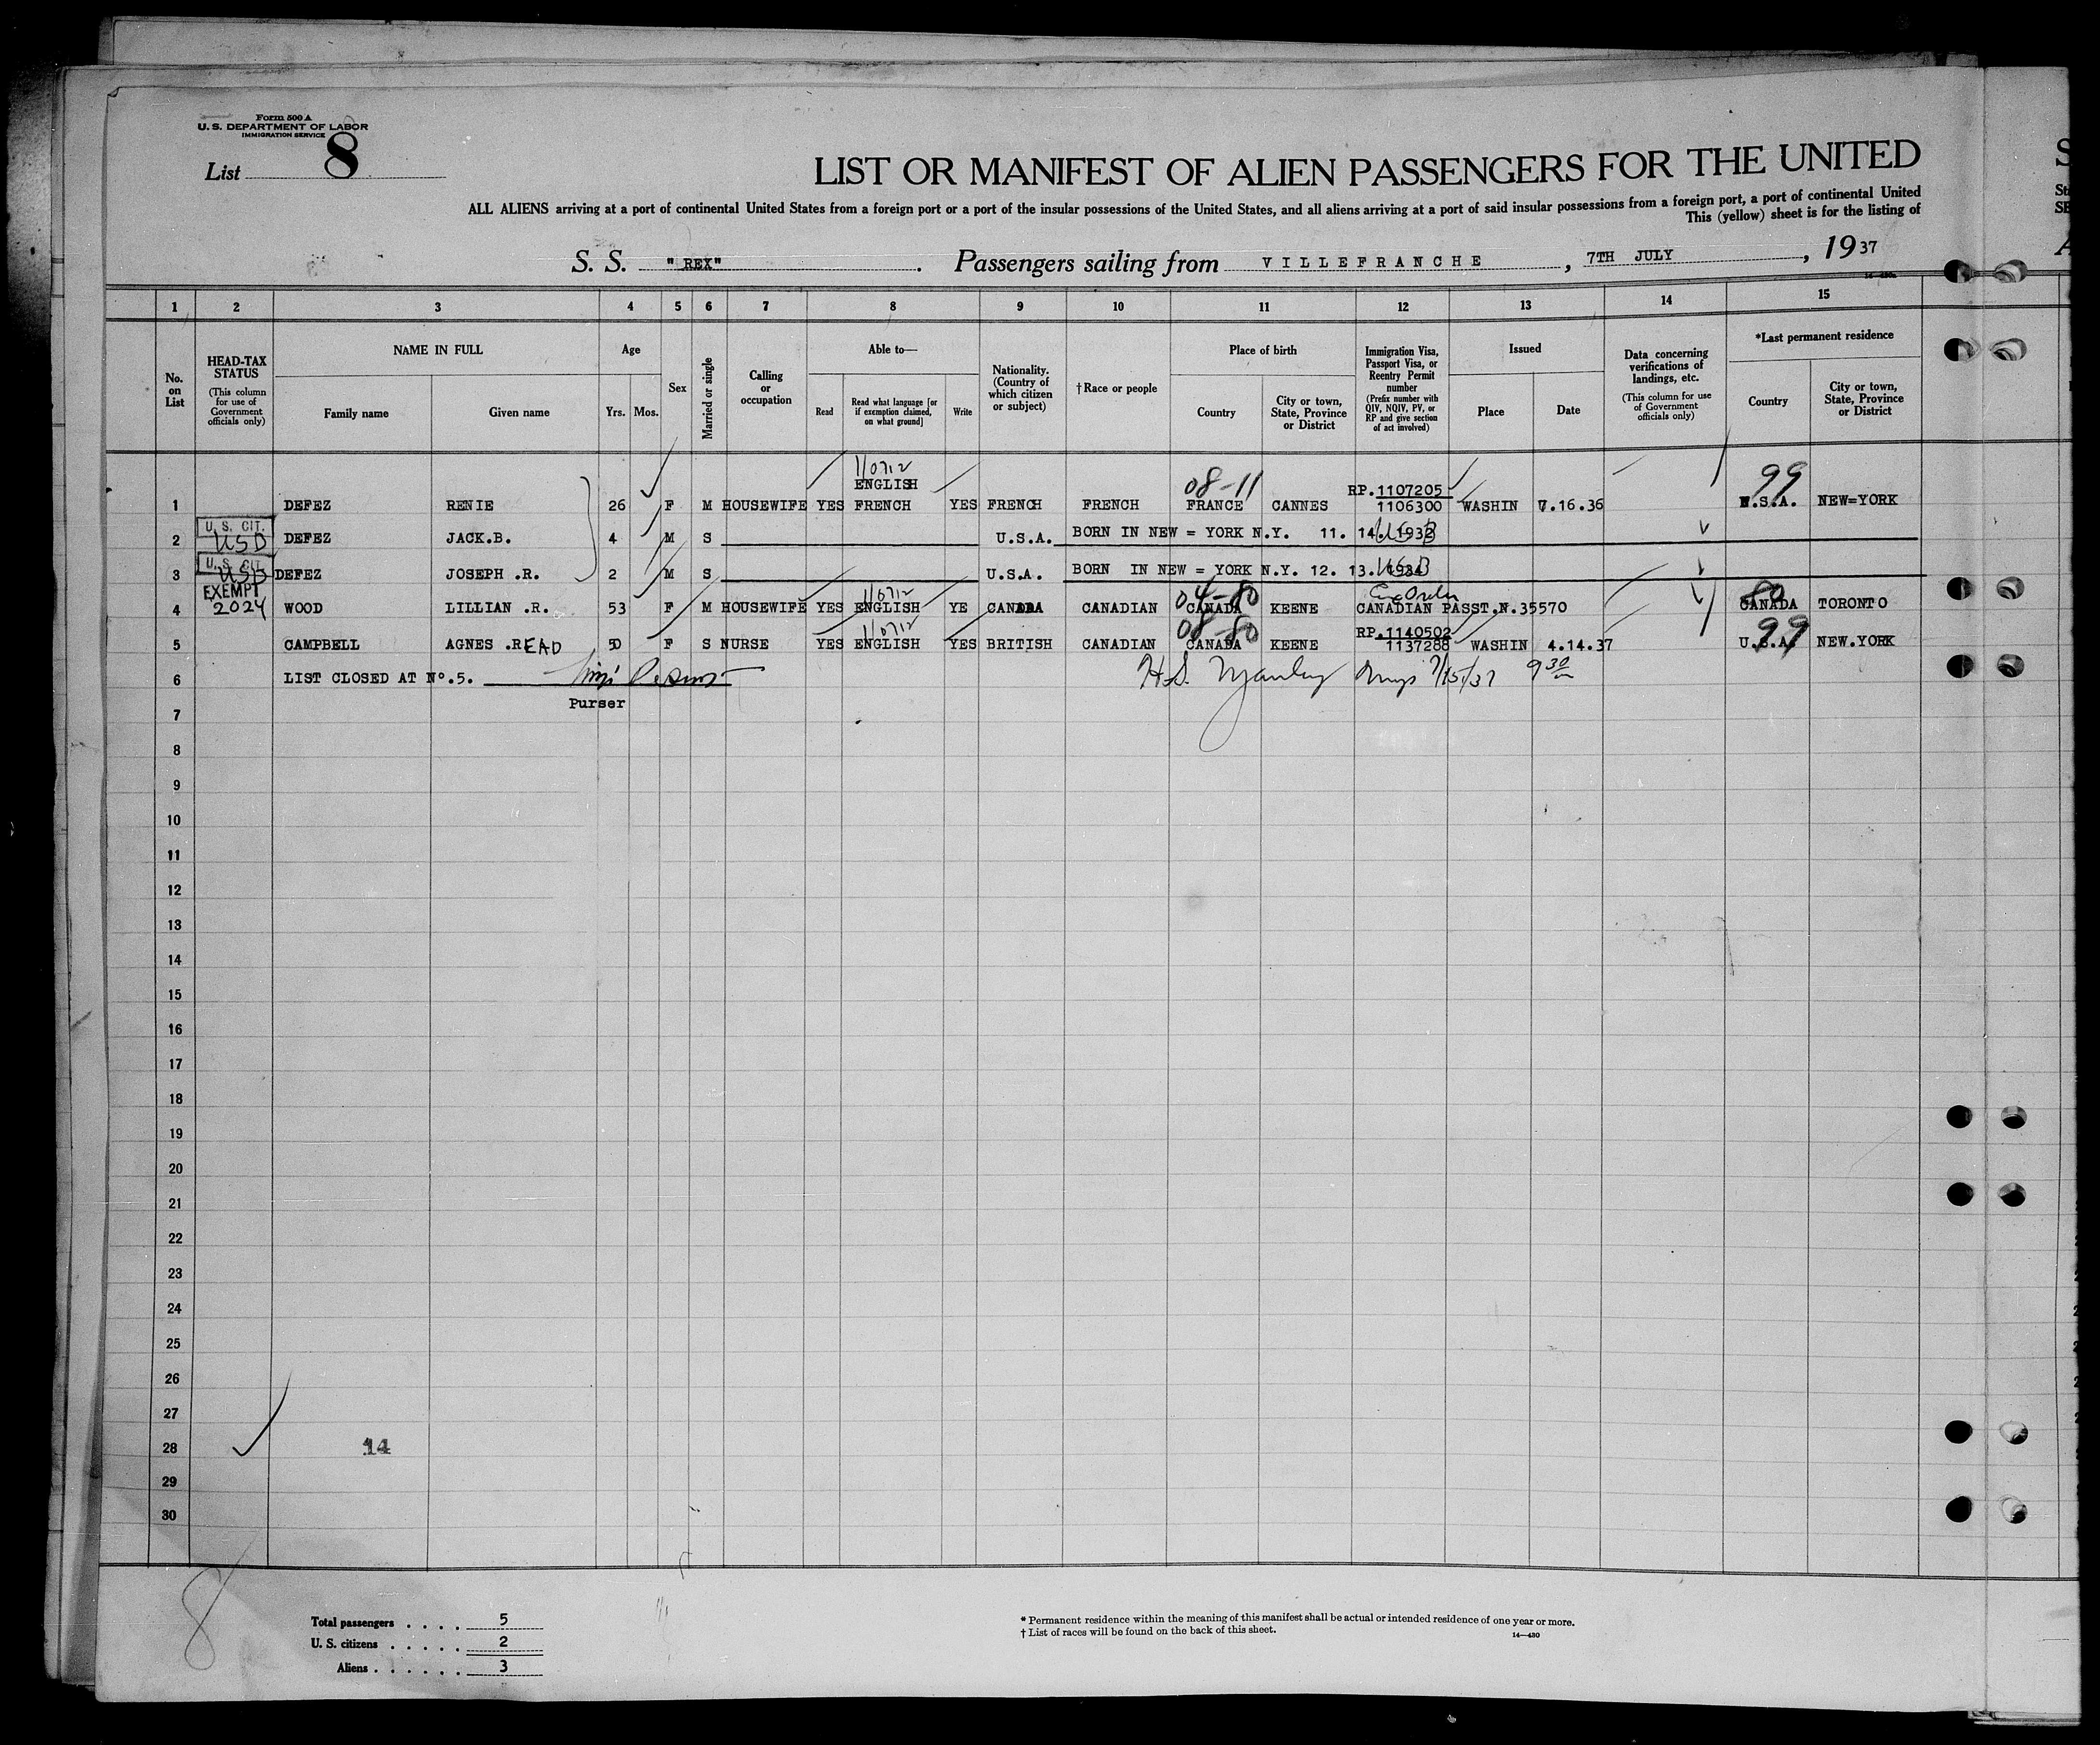 Form 500 A
U. S. DEPARTMENT OF LABOR
IMMIGRATION SERVICE
List 8
LIST OR MANIFEST OF ALIEN PASSENGERS FOR THE UNITED
ALL ALIENS arriving at a port of continental United States from a foreign port or a port of the insular possessions of the United States, and all aliens arriving at a port of said insular possessions from a foreign port, a port of continental United
This (yellow) sheet is for the listing of
S. S. "REX". Passengers sailing from VILLEFRANCHE, 7TH JULY, 1937
1 2 3 4 5 6 7 8 9 10 11 12 13 14 15
No. on List
HEAD-TAX STATUS (This column for use of Government officials only)
NAME IN FULL
Family name Given name
Age
Yrs. Mos.
Sex
Married or single
Calling or occupation
Able to—
Read Read what language [or if exemption claimed, on what ground] Write
Nationality. (Country of which citizen or subject)
†Race or people
Place of birth
Country City or town, State, Province or District
Immigration Visa, Passport Visa, or Reentry Permit number (Prefix number with QIV, NQIV, PV, or RP and give section of act involved)
Issued
Place Date
Data concerning verifications of landings, etc. (This column for use of Government officials only)
*Last permanent residence
Country City or town, State, Province or District
ENGLISH 08-11 RP.1107205 99
1 DEFEZ RENIE 26 F M HOUSEWIFE YES FRENCH YES FRENCH FRENCH FRANCE CANNES 1106300 WASHIN 7.16.36 U.S.A. NEW=YORK
U. S. CIT.
2 USD DEFEZ JACK.B. 4 M S U.S.A. BORN IN NEW = YORK N.Y. 11. 14. 1932
U. S. CIT.
3 USD DEFEZ JOSEPH .R. 2 M S U.S.A. BORN IN NEW = YORK N.Y. 12. 13. 1934
EXEMPT 04-80 80
4 2024 WOOD LILLIAN .R. 53 F M HOUSEWIFE YES ENGLISH YE CANADA CANADIAN CANADA KEENE CANADIAN PASST.N.35570 CANADA TORONTO
08-80 RP.1140502 99
5 CAMPBELL AGNES .READ 50 F S NURSE YES ENGLISH YES BRITISH CANADIAN CANADA KEENE 1137288 WASHIN 4.14.37 U.S.A. NEW.YORK
6 LIST CLOSED AT Nº.5. H.S. 7/15/37 9 30
Purser
7
8
9
10
11
12
13
14
15
16
17
18
19
20
21
22
23
24
25
26
27
28 14
29
30
8
Total passengers . . . . 5
U. S. citizens . . . . . 2
Aliens . . . . . . 3
* Permanent residence within the meaning of this manifest shall be actual or intended residence of one year or more.
† List of races will be found on the back of this sheet. 14—430